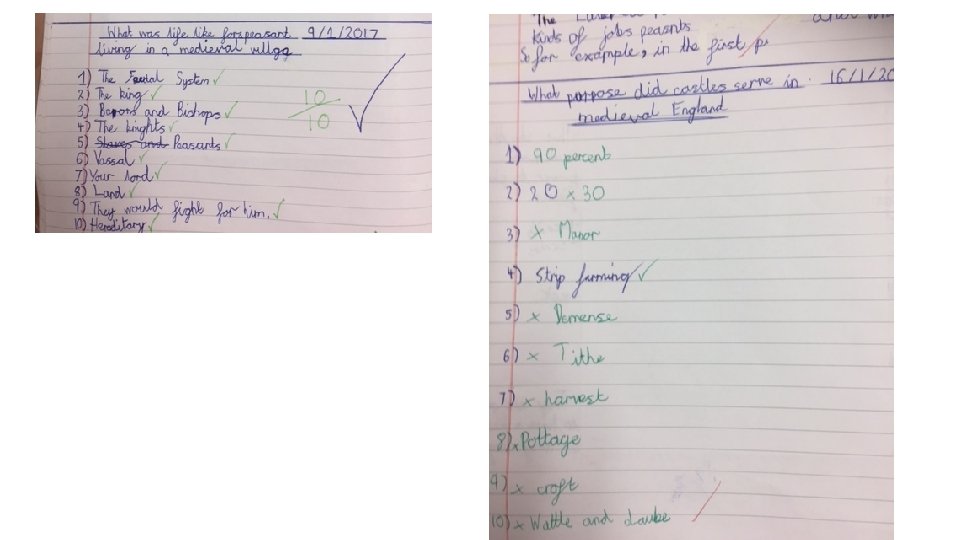 What was life like for peasant 9/1/2017
living in a medieval villgg
1) The Feudal System ✓
2) The king ✓
3) Barons and Bishops ✓
4) The knights ✓
5) Slaves and Peasants ✓
6) Vassal ✓
7) Your Lord ✓
8) Land ✓
9) They would fight for him. ✓
10) Hereditary ✓
10
10
The
kinds of jobs peasnts
So for example, in the first
What purpose did castles serve in 16/1/20
medieval England
1) 90 percent
2) 20 x 30
3) x Manor
4) Strip farming ✓
5) x Demense
6) x Tithe
7) x harvest
8) x Pottage
9) x croft
10) x Wattle and daube